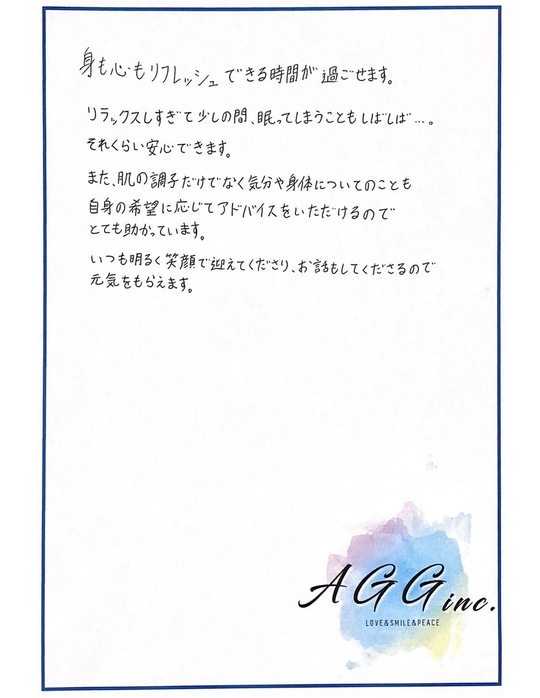 身も心もリフレッシュできる時間が過ごせます。
リラックスしすぎて少しの間、眠ってしまうこともしばしば…。
それくらい安心できます。
また、肌の調子だけでなく気分や身体についてのことも
自身の希望に応じてアドバイスをいただけるので
とても助かっています。
いつも明るく笑顔で迎えてくださり、お話もしてくださるので
元気をもらえます。
AGG inc.
LOVE&SMILE&PEACE